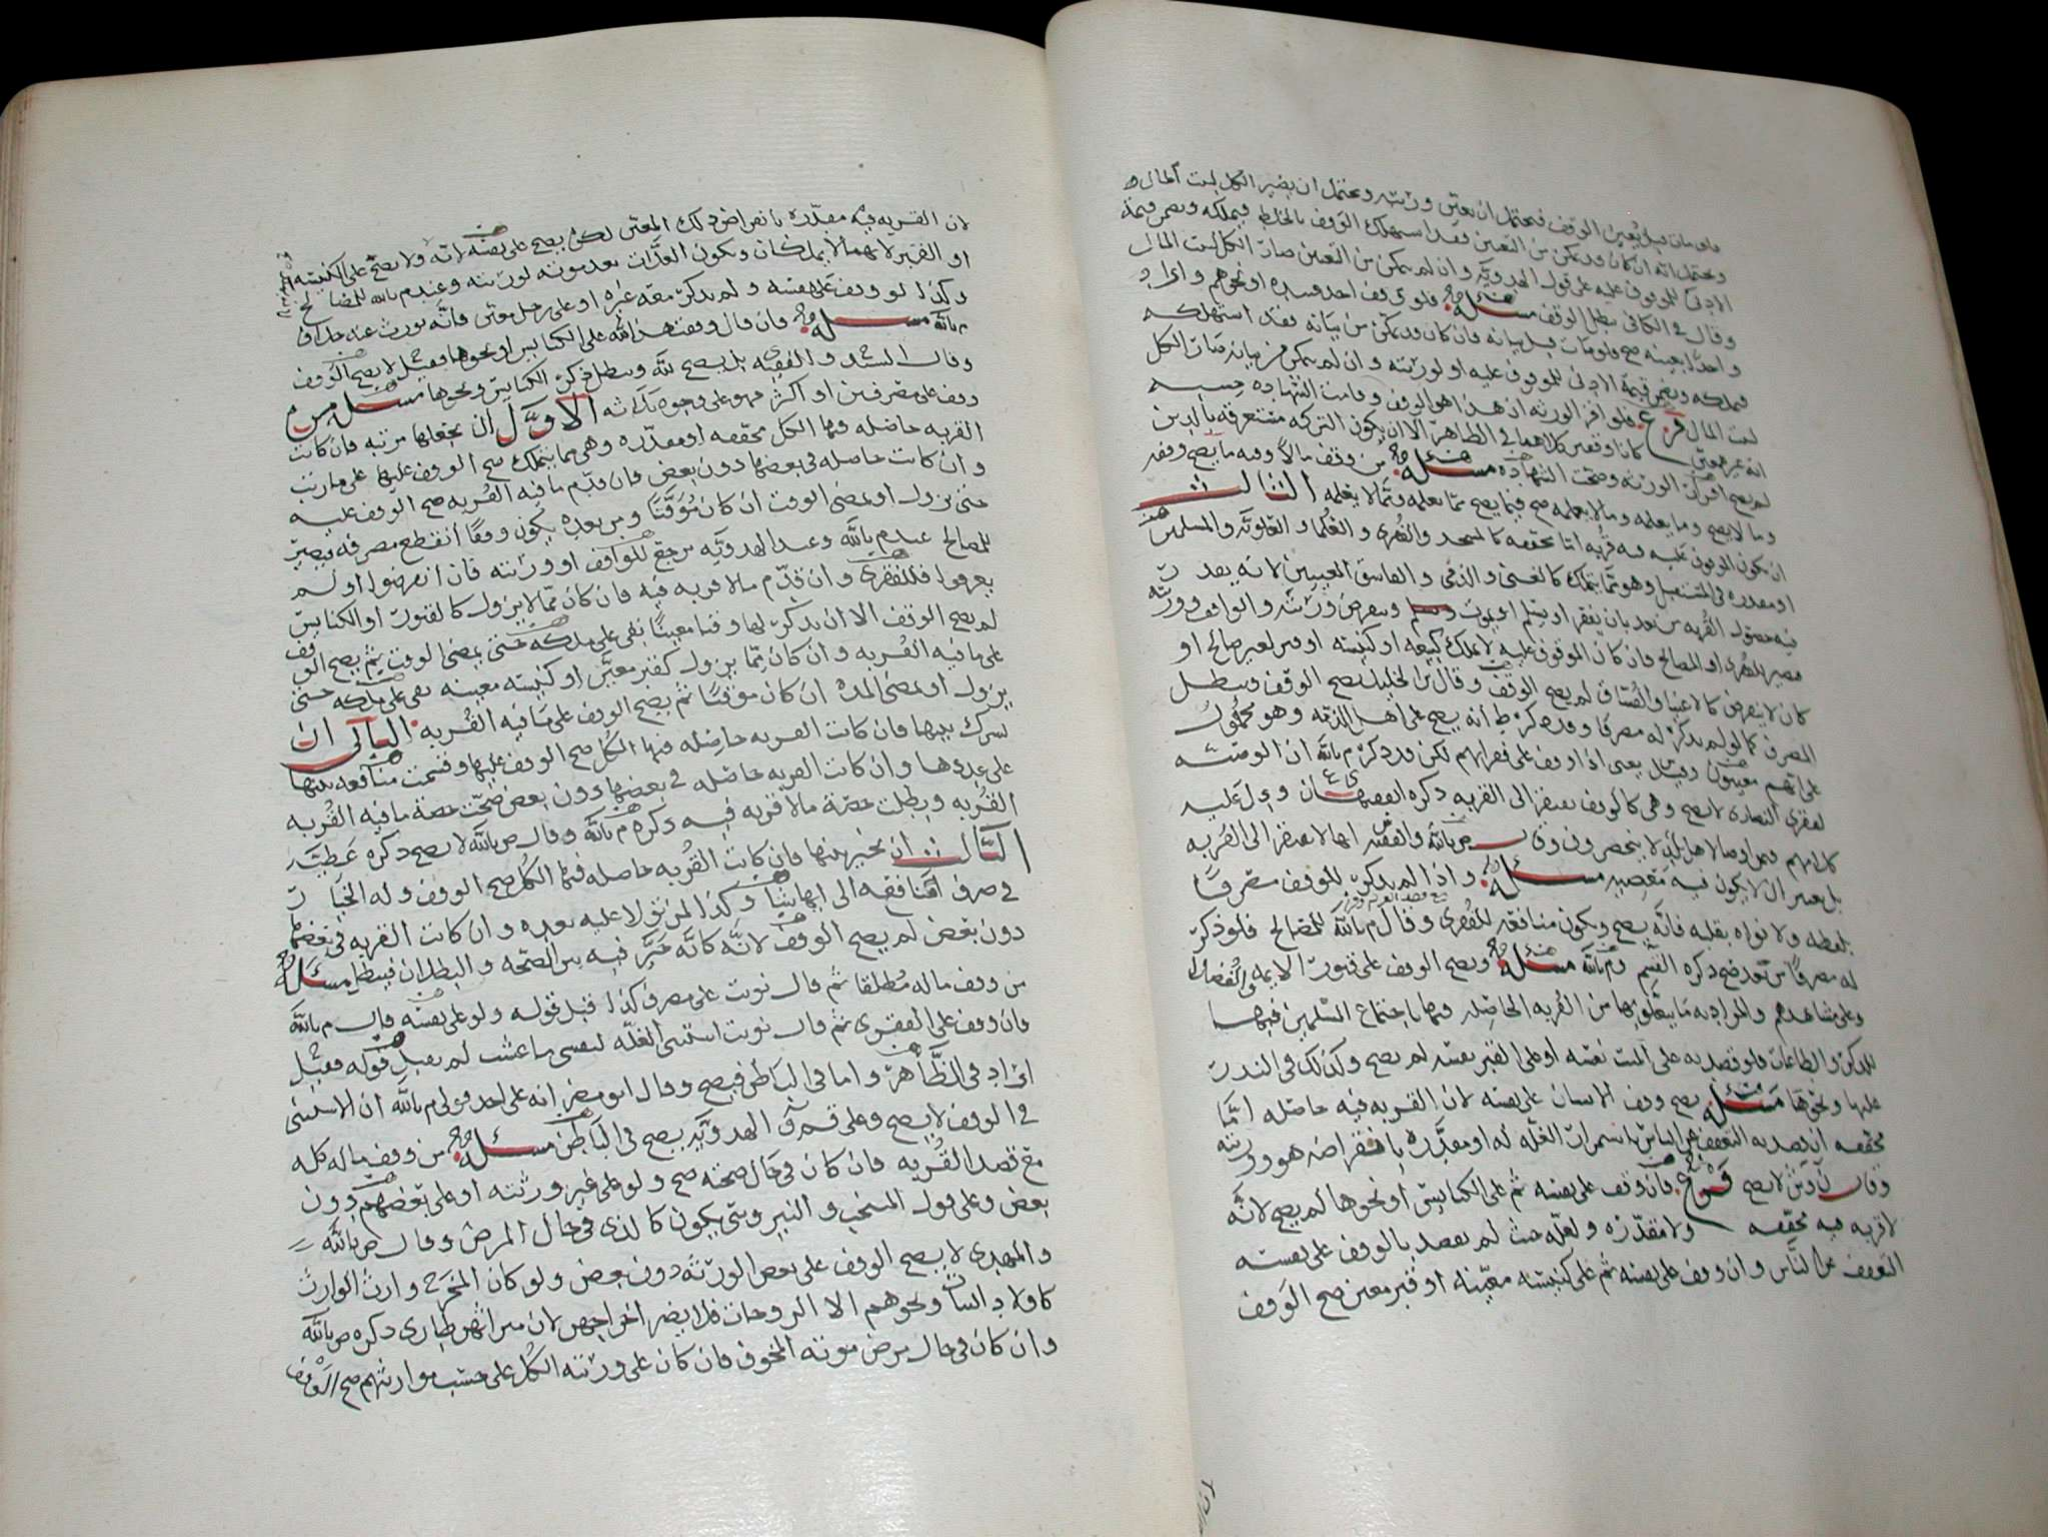 فلو مات قبل تعيين الوقف فيحتمل ان يعين ورثته ويحتمل ان يصير الكل لبيت المال
ويحتمل انه ان كان قد تمكن من التعيين فقد استهلك الوقف بالخلط فيملكه ويضمن قيمة
الادنى للموقوف عليه على قول الهدويه وان لم يتمكن من التعيين صار الكل لبيت المال
وقال في الكافي يبطل الوقف مسئله فلو وقف احد عبيده او نحوهم واراد
واحدا لا بعينه صح فلو مات قبل بيانه فان كان قد تمكن من بيانه فقد استهلكه
فيملكه ويضمن قيمة الادنى للموقوف عليه او لورثته وان لم يتمكن من بيانه صار الكل
لبيت المال فرع فلو اقر الورثه ان هذا هو الوقف وقامت الشهاده حسبه
انه غير معين كانا وقفين كلاهما في الظاهر الا ان يكون التركه مستغرقه بالدين
لم يصح اقرار الورثه وصحت الشهاده مسئله من وقف مالا وفيه ما يصح وقفه
وما لا يصح وما يعلمه وما لا يعلمه صح فيما يصح مما يعلمه ومما لا يعلمه الثالث
ان يكون الموقوف عليه فيه قربه اما محققه كالمسجد والفقرى والعلما والعلويه والمسلمين
او مقدره في المستقبل وهو مما يتملك كالغني والذمي والفاسق المعينين لانه يقدر
فيه حصول القربه من بعد بان يفتقر او يسلم او يموت وينقرض ورثته والواقف وورثته
فيصير للفقرى او المصالح فان كان الموقوف عليه لا يملك كبيعه او كنيسه او قبر لغير صالح او
كان لا ينقرض كالاغنيا والفساق لم يصح الوقف وقال بن الخليل يصح الوقف ويبطل
المصرف كما لو لم يذكر له مصرفا وقد ذكر ط انه يصح على اهل الذمه وهو محمول
على انهم معينون وقيل يعني اذا وقف على فقرائهم لكن قد ذكر م بالله ان الوصيه
لفقرى النصارى لا تصح وهي كالوقف تفتقر الى القربه ذكره الفقيهان ودل عليه
بل يعتبر ان لا يكون فيه معصيه مسئله واذا لم يذكر للوقف مصرفا
بلفظه ولا نواه بقلبه فانه يصح ويكون منافعه للفقرى وقال م بالله للمصالح فلو ذكر
له مصرفا من بعد صح ذكره القسم وم بالله مسئله ويصح الوقف على قبور الايمه والفضلا
وعلى مشاهدهم والمراد به ما يتعلق بها من القربه الحاصله فيها باجتماع المسلمين فيها
للذكر والطاعات فلو قصد به على الميت نفسه او على القبر نفسه لم يصح وكذلك في النذر
عليها ونحوها مسئله يصح وقف الانسان على نفسه لان القربه فيه حاصله اما
محققه ان قصد به التعفف عن الناس باستمرار الغله له او مقدره بانقراضه هو وورثته
وقال ن لا يصح فرع فان وقف على نفسه ثم على الكنايس او نحوها لم يصح لانه
لا قربه فيه محققه ولا مقدره ولعله حيث لم يقصد بالوقف على نفسه
التعفف عن الناس وان وقف على نفسه ثم على كنيسه معينه او قبر معين صح الوقف
لان القربه فيه مقدره بانقراض ذلك المعين لكن يصح على نفسه لانه ولا يصح على الكنيسه
او القبر لانهما لا يملكان ويكون الغلات بعد موته لورثته وعند م بالله للمصالح
وكذا لو وقف على نفسه ولم يذكر معه غيره او على رجل معين فانه يورث عنه خلاف
م بالله مسئله فان قال وقفت هذا لله على الكنايس او نحوها فقيل لا يصح الوقف
وقال السيد والفقيه بل يصح لله ويبطل ذكر الكنايس ونحوها مسئله من
وقف على مصرفين او اكثر فهو على وجوه ثلاثه الاول ان يجعلها مرتبه فان كانت
القربه حاصله فيها الكل محققه او مقدره وهي مما يتملك صح الوقف عليها على ما رتب
وان كانت حاصله في بعضها دون بعض فان قدم ما فيه القربه صح الوقف عليه
حتى يزول او يمضي الوقت ان كان موقتا ومن بعده يكون وقفا انقطع مصرفه فيصير
للمصالح عند م بالله وعند الهدويه يرجع للواقف او ورثته فان انقرضوا او لم
يعرفوا فللفقرى وان قدم ما لا قربه فيه فان كان مما لا يزول كالقبور او الكنايس
لم يصح الوقف الا ان يذكر لها وقتا معينا بقي على ملكه حتى يمضي الوقت ثم يصح الوقف
على ما فيه القربه وان كان مما يزول كقبر معين او كنيسه معينه بقي على ملكه حتى
يزول او يمضي المده ان كان موقتا ثم يصح الوقف على ما فيه القربه الثاني ان
يشرك بينها فان كانت القربه حاصله فيها الكل صح الوقف عليها وقسمت منافعه بينها
على عددها وان كانت القربه حاصله في بعضها دون بعض صحت حصة ما فيه القربه
القربه وبطلت حصة ما لا قربه فيه ذكره م بالله وقال ص بالله لا يصح ذكره عطيه
الثالث ان يخير بينها فان كانت القربه حاصله فيها الكل صح الوقف وله الخيار
في صرف منافعه الى ايها شا وكذا لمن تولا عليه بعده وان كانت القربه في بعضها
دون بعض لم يصح الوقف لانه كانه خير فيه بين الصحه والبطلان فيبطل مسئله
من وقف ماله مطلقا ثم قال نويت على مصرف كذا قبل قوله ولو على نفسه قال م بالله
فان وقف على الفقرى ثم قال نويت استثني الغله لنفسي ما عشت لم يقبل قوله فقيل
اراد في الظاهر واما في الباطن فيصح وقال ابو مضر انه على احد قولي م بالله ان الاستثنى
في الوقف لا يصح وعلى قوله الهدويه يصح في الباطن مسئله من وقف ماله كله
مع قصد القربه فان كان في حال صحته صح ولو على غير ورثته او على بعضهم دون
بعض وعلى قول المنتخب والنيروسي يكون كالذي في حال المرض وقال ص بالله
والمهدي لا يصح الوقف على بعض الورثه دون بعض ولو كان المخرج وارث الوارث
كاولاد البنات ونحوهم الا الزوجات فلا يضر اخراجهن لان ميراثهن طاري ذكره ص بالله
وان كان في حال مرض موته المخوف فان كان على ورثته الكل على حسب مواريثهم صح الوقف